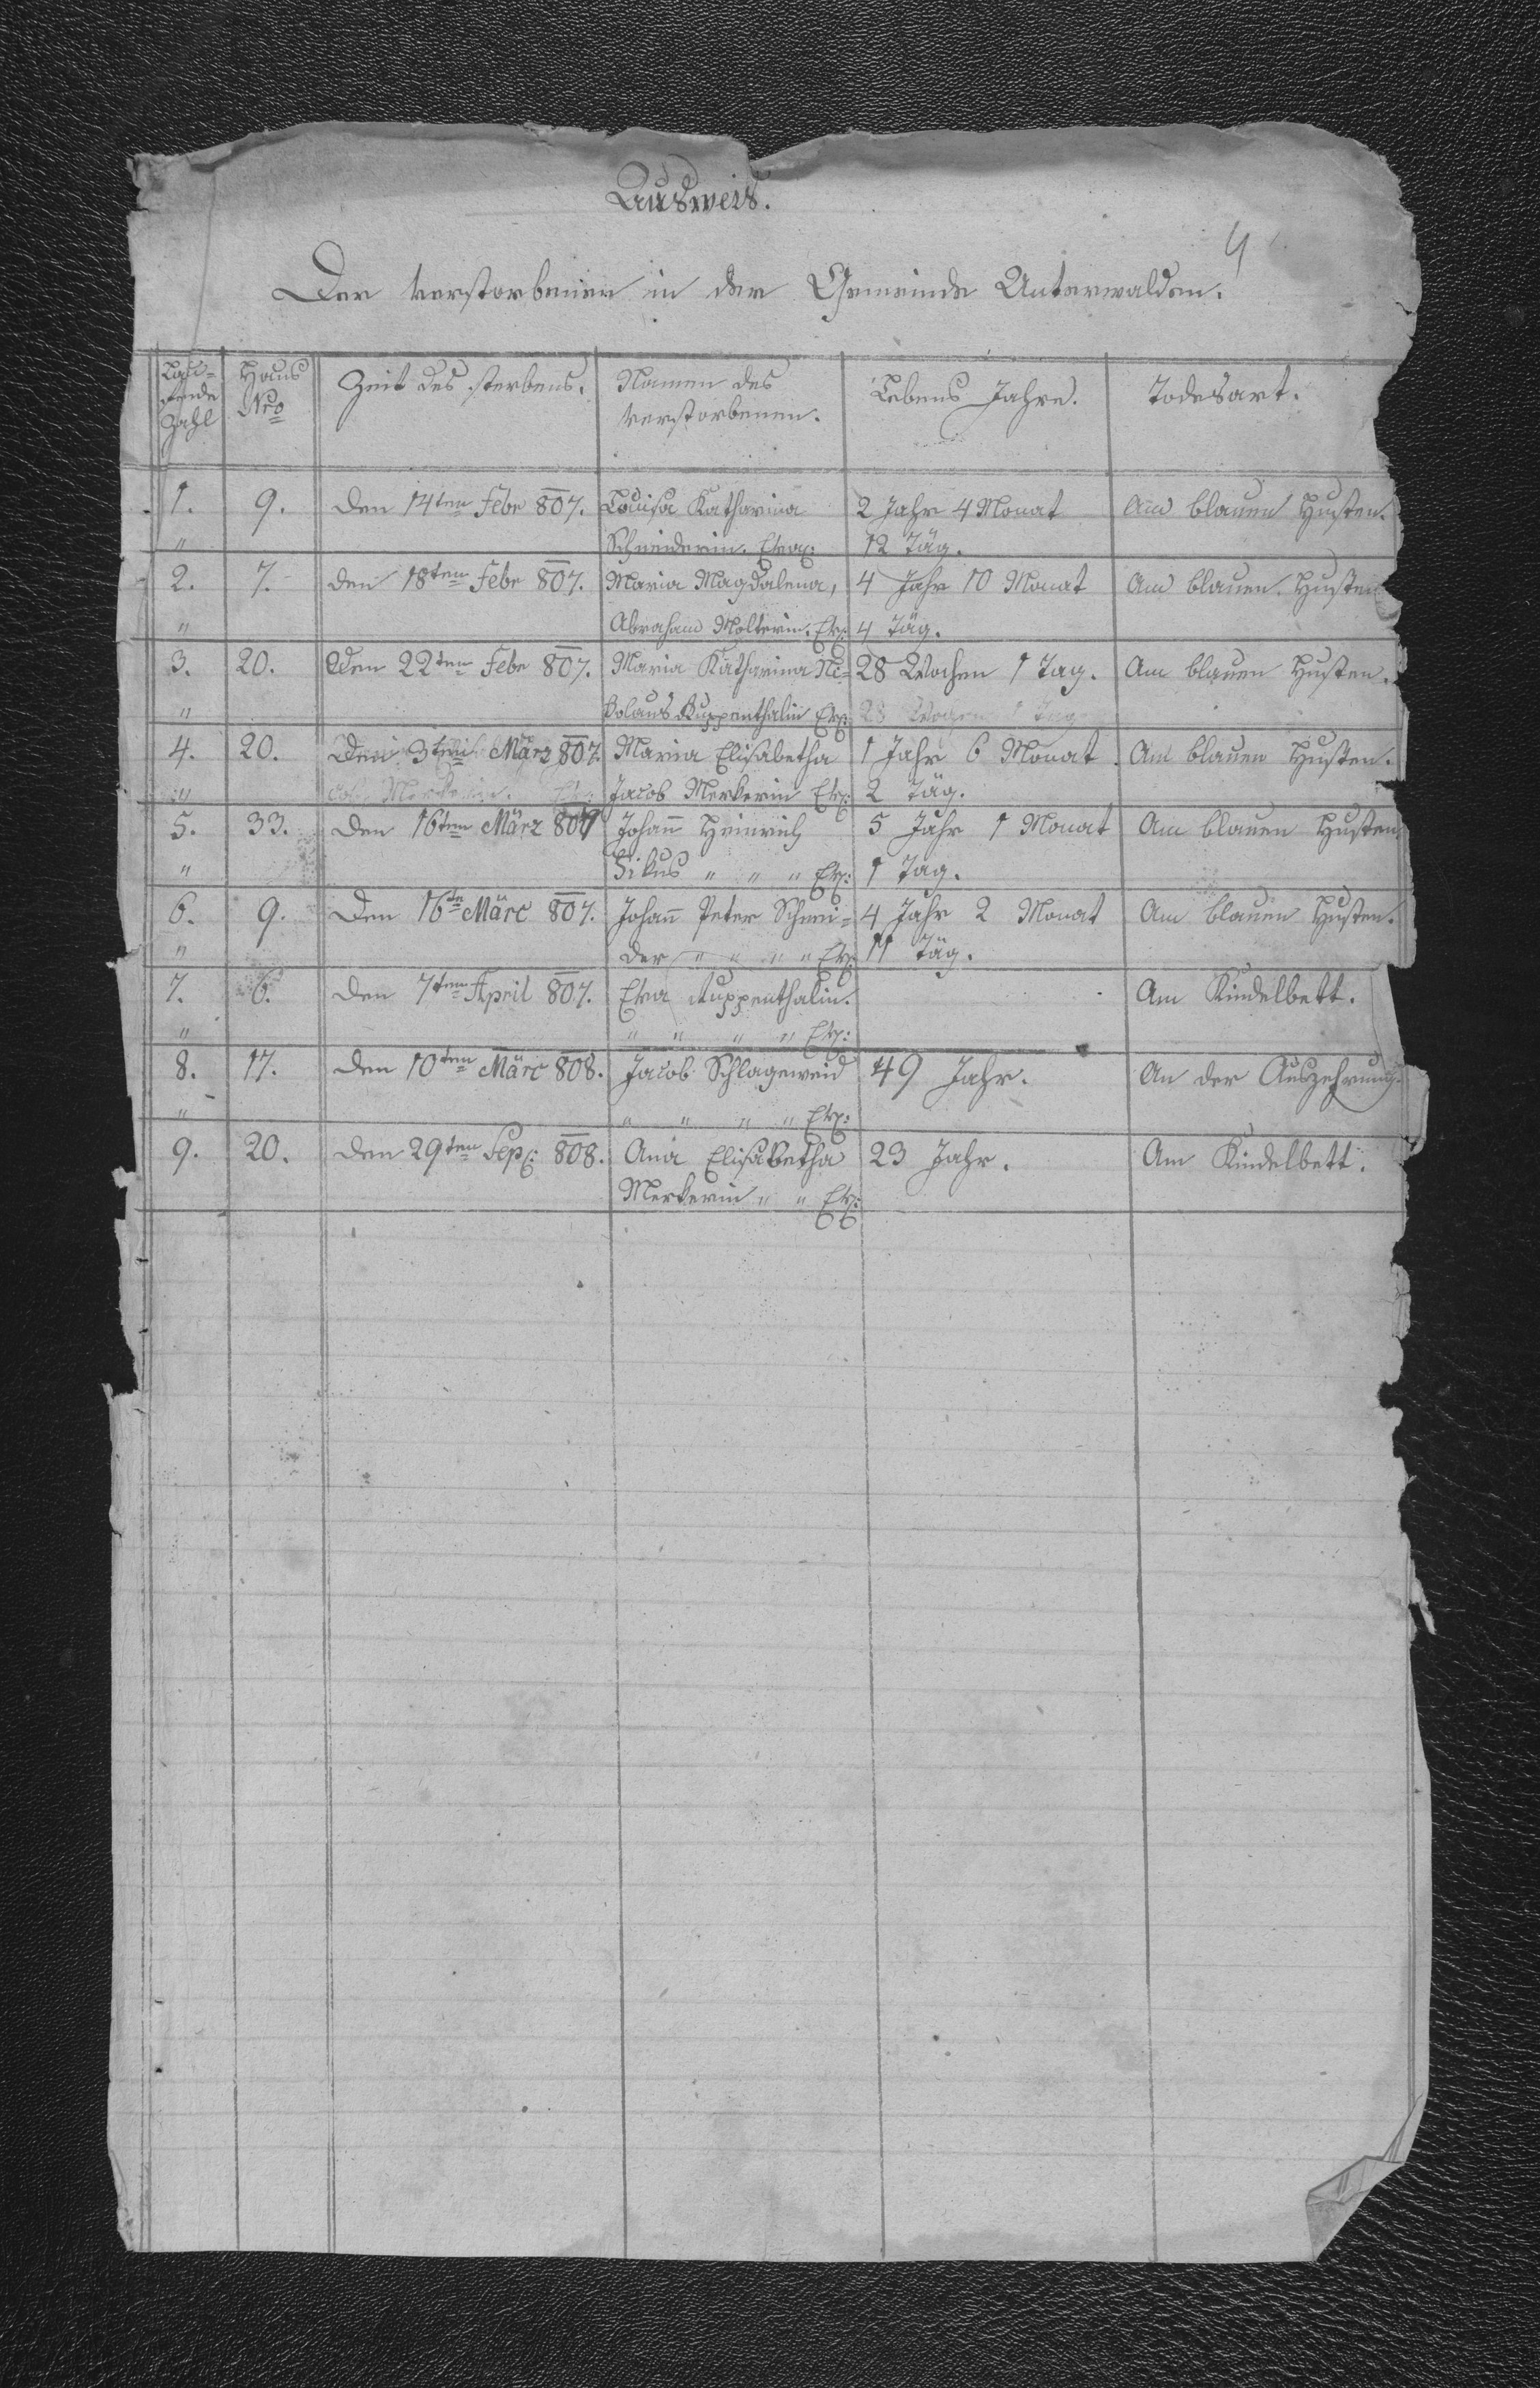 Ausweis.
4
Der verstorbenen in der Gemeinde Unterwalden.
Lau=
fende
Zahl
Haus
Nro
Zeit des sterbens.
Namen des
verstorbenen.
Lebens Jahre.
Todesart.
1. 9. Den 14ten Febr 807. Louisa Katharina 2 Jahr 4 Monat Am blauen Husten.
" Schneiderin. 12 Täg.
2. 7. Den 18ten Febr 807. Maria Magdalena, 4 Jahr 10 Monat Am blauen Husten
" Abraham Molterin. 4 Täg.
3. 20. Den 22ten Febr 807. Maria Katharina Ni= 28 Wochen 1 Tag. Am blauen Husten.
" kolaus Ruppenthalin 28 Wochen 1 Tag
4. 20. Den 3ten März 807. Maria Elisabetha 1 Jahr 6 Monat Am blauen Husten.
" Merkerin. Jacob Merkerin 2 Täg.
5. 33. Den 16ten März 807 Johann Heinrich 5 Jahr 1 Monat Am blauen Husten
" " " " 1 Tag.
6. 9. Den 16te Märc 807. Johann Peter Schnei= 4 Jahr 2 Monat Am blauen Husten.
" der " " " " 11 Täg.
7. 6. Den 7ten April 807. Eva Ruppenthalin. Am Kindelbett.
" " " " "
8. 17. Den 10ten Märc 808. Jacob Schlageweid 49 Jahr. An der Auszehrung.
" " " " "
9. 20. Den 29ten Sep: 808. Ana Elisabetha 23 Jahr. Am Kindelbett.
Merkerin " "